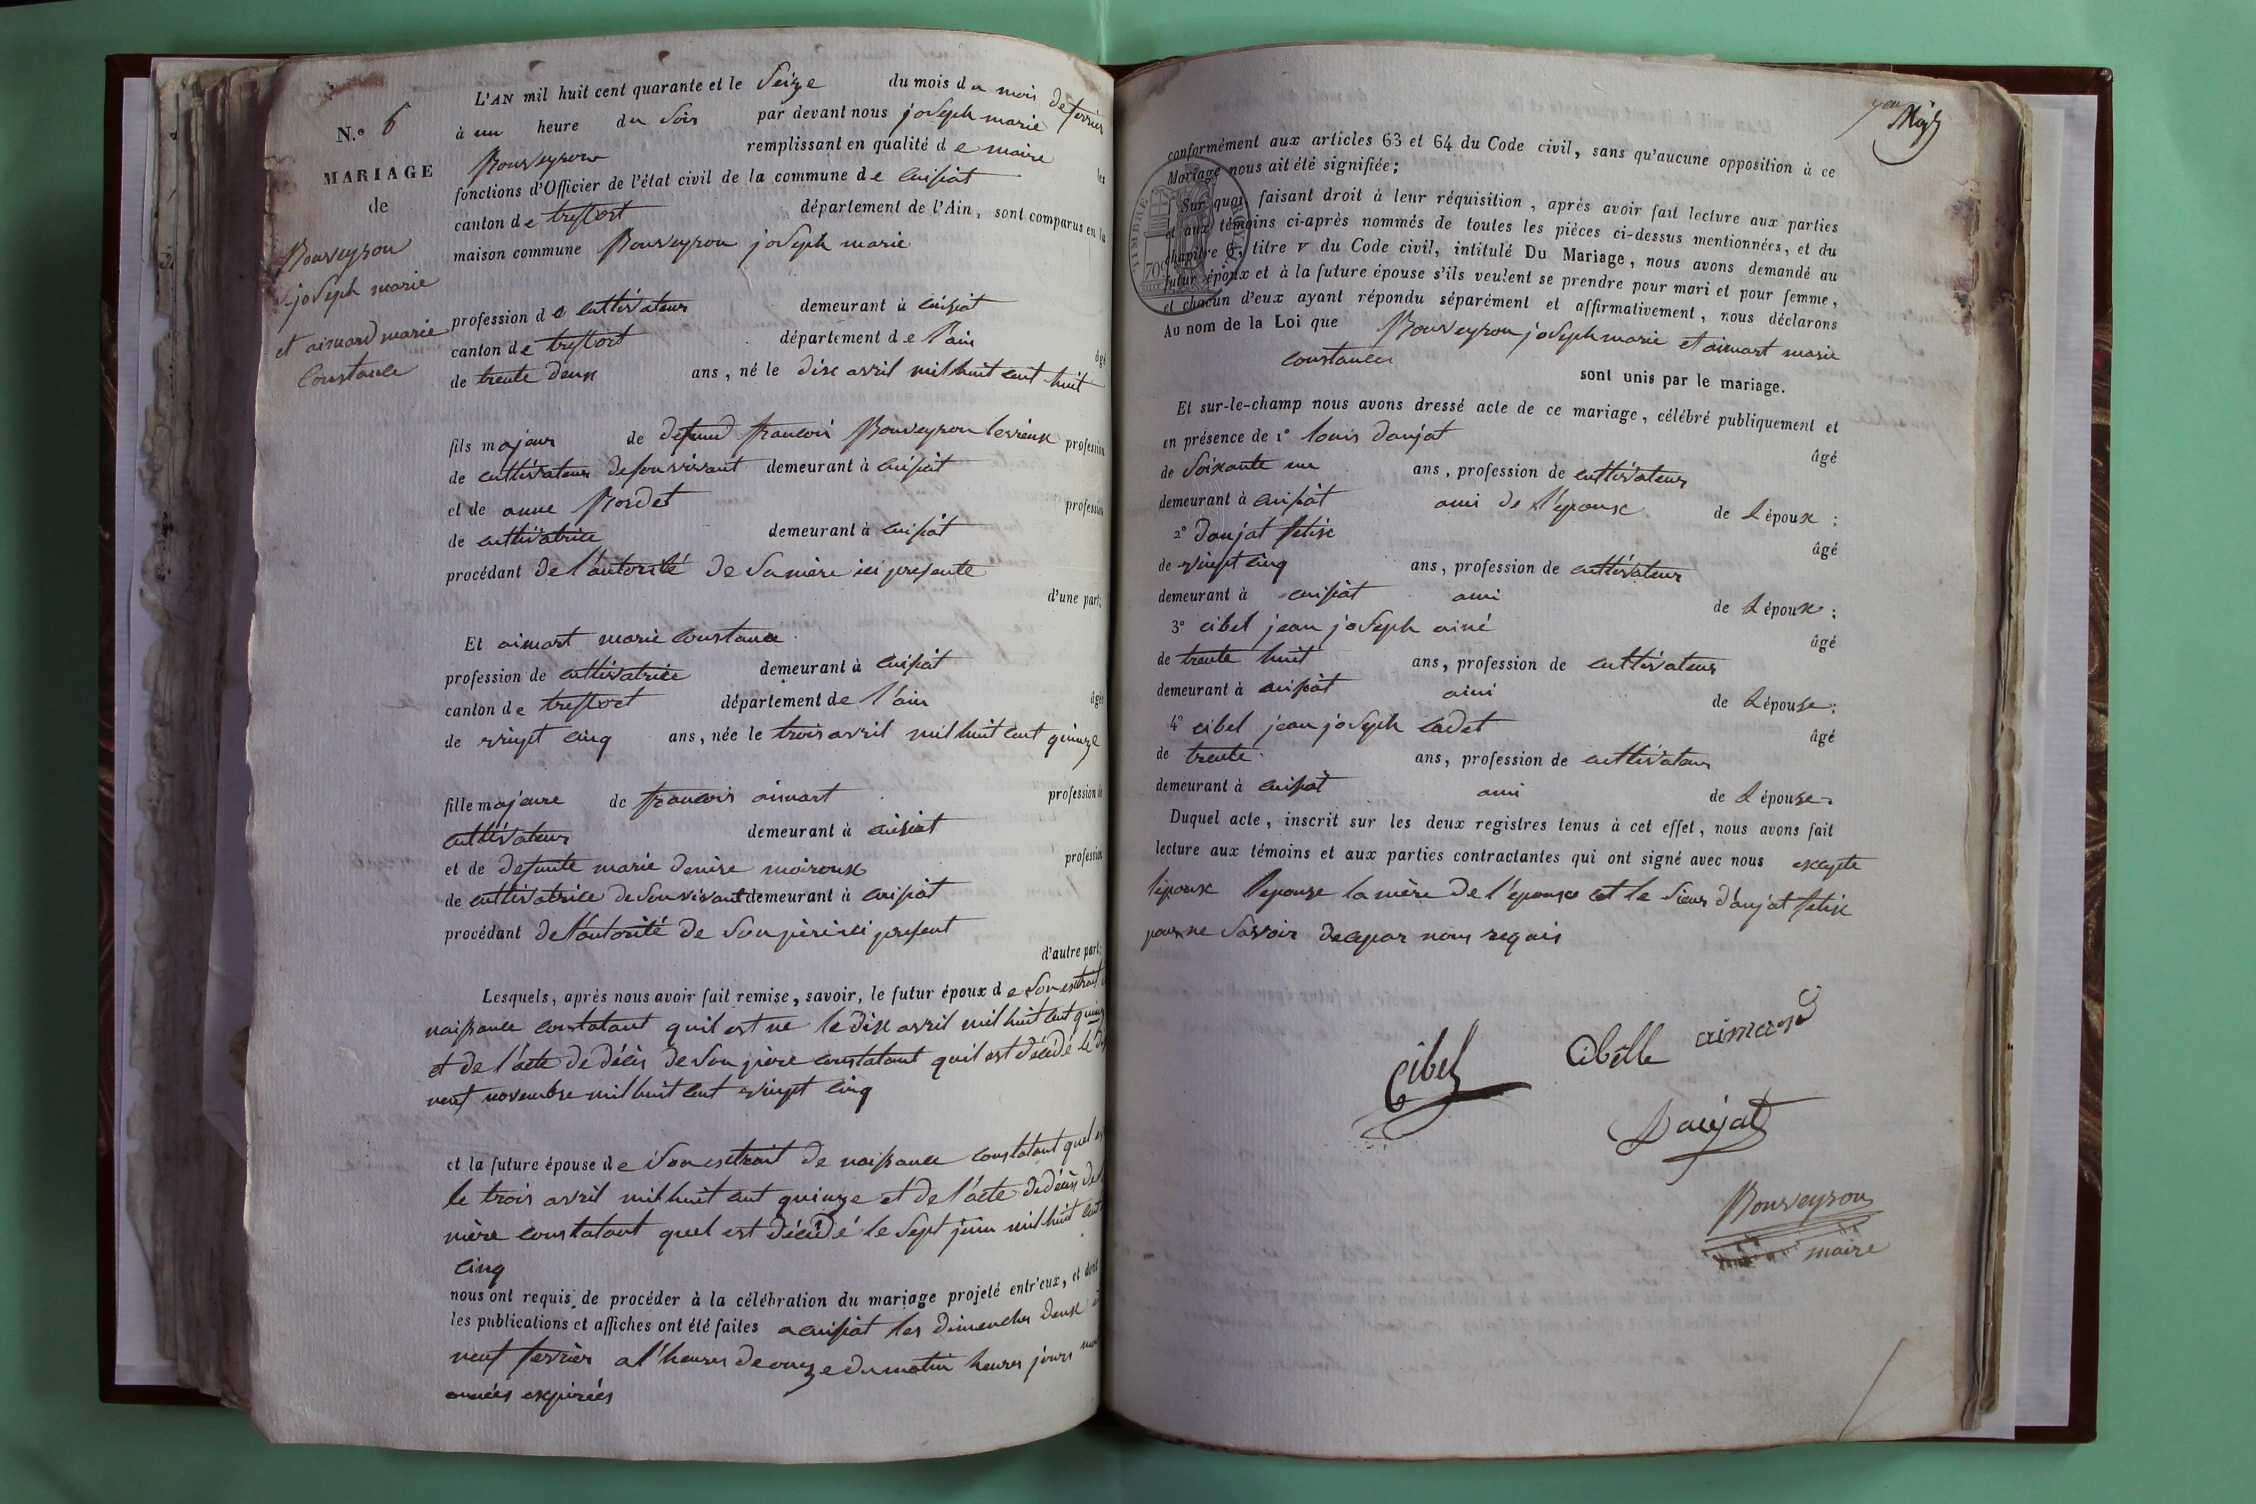 N.º 6
MARIAGE
de
Bouveyron
joseph marie
et aimard marie
Constance
L'AN mil huit cent quarante et le Seize du mois du mois de fevrier
à un heure du Soir par devant nous joseph marie
Bouveyron remplissant en qualité de maire les
fonctions d'Officier de l'état civil de la commune de Cuisiat
canton de treffort département de l'Ain, sont comparus en la
maison commune Bouveyron joseph marie
profession de cultivateur demeurant à Cuisiat
canton de treffort département de l'ain âgé
de trente deux ans, né le dix avril mil huit cent huit
fils majeur de defund francois Bouveyron profession
de cultivateur de son vivant demeurant à Cuisiat
et de anne Bordet profession
de cultivatrice demeurant à Cuisiat
procédant de l'autorité de Sa mère ici presente
d'une part;
Et aimart marie constance
profession de cultivatrice demeurant à Cuisiat
canton de treffort département de l'ain âgée
de vingt cinq ans, née le trois avril mil huit cent quinze
fille majeure de francois aimart profession de
cultivateur demeurant à Cuisiat
et de defunte marie denise moiroux profession
de cultivatrice de Son vivant demeurant à Cuisiat
procédant de l'autorité de Son père ici present
d'autre part;
Lesquels, après nous avoir fait remise, savoir, le futur époux de Son extrait
naissance constatant quil est ne le dix avril mil huit cent
et de l'acte de décès de Son père constatant quil est décédé le
neuf novembre mil huit cent vingt cinq
et la future épouse de Son extrait de naissance constatant quel
le trois avril mil huit cent quinze et de l'acte de décès de
mère constatant quel est décédé le Sept juin mil huit cent
cinq
nous ont requis de procéder à la célébration du mariage projeté entr'eux, et dont
les publications et affiches ont été faites a cuisiat les dimanches deux
neuf fevrier a l'heures de onze du matin heures jours
années expirées
conformément aux articles 63 et 64 du Code civil, sans qu'aucune opposition à ce
Mariage nous ait été signifiée;
TIMBRE ROYAL
70c
Sur quoi, faisant droit à leur réquisition, après avoir fait lecture aux parties
et aux témoins ci-après nommés de toutes les pièces ci-dessus mentionnées, et du
chapitre 6, titre v du Code civil, intitulé Du Mariage, nous avons demandé au
futur époux et à la future épouse s'ils veulent se prendre pour mari et pour femme,
et chacun d'eux ayant répondu séparément et affirmativement, nous déclarons
Au nom de la Loi que Bouveyron joseph marie et aimart marie
constance
sont unis par le mariage.
Et sur-le-champ nous avons dressé acte de ce mariage, célébré publiquement et
en présence de 1º louis daujat âgé
de Soixante un ans, profession de cultivateur
demeurant à Cuisiat ami de l'epoux de L époux;
2º daujat felix âgé
de vingt cinq ans, profession de cultivateur
demeurant à cuisiat ami de L époux;
3º cibel jean joseph ainé âgé
de trente huit ans, profession de cultivateur
demeurant à cuisiat ami de L épouse;
4º cibel jean joseph cadet âgé
de trente ans, profession de cultivateur
demeurant à Cuisiat ami de L épouse
Duquel acte, inscrit sur les deux registres tenus à cet effet, nous avons fait
lecture aux témoins et aux parties contractantes qui ont signé avec nous excepte
lepoux lepouse la mère de l'epoux et le Sieur daujat felix
pour ne Savoir de ce par nous requis
Cibel
Cibelle
aimard
Daujat
Bouveyron
maire